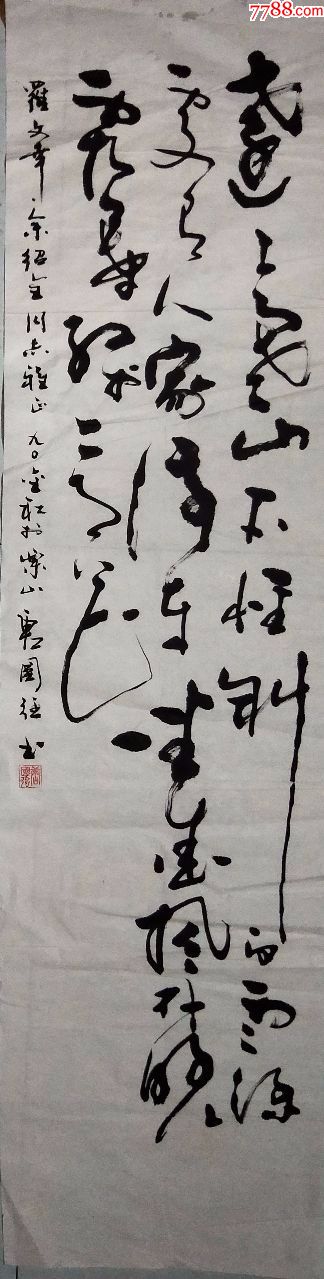 7788.com
遠上寒山石径斜白雲深
處有人家停車坐愛枫林晚
霜葉红於二月花
羅文 余紹金同志雅正 九〇金秋於 山 國 书